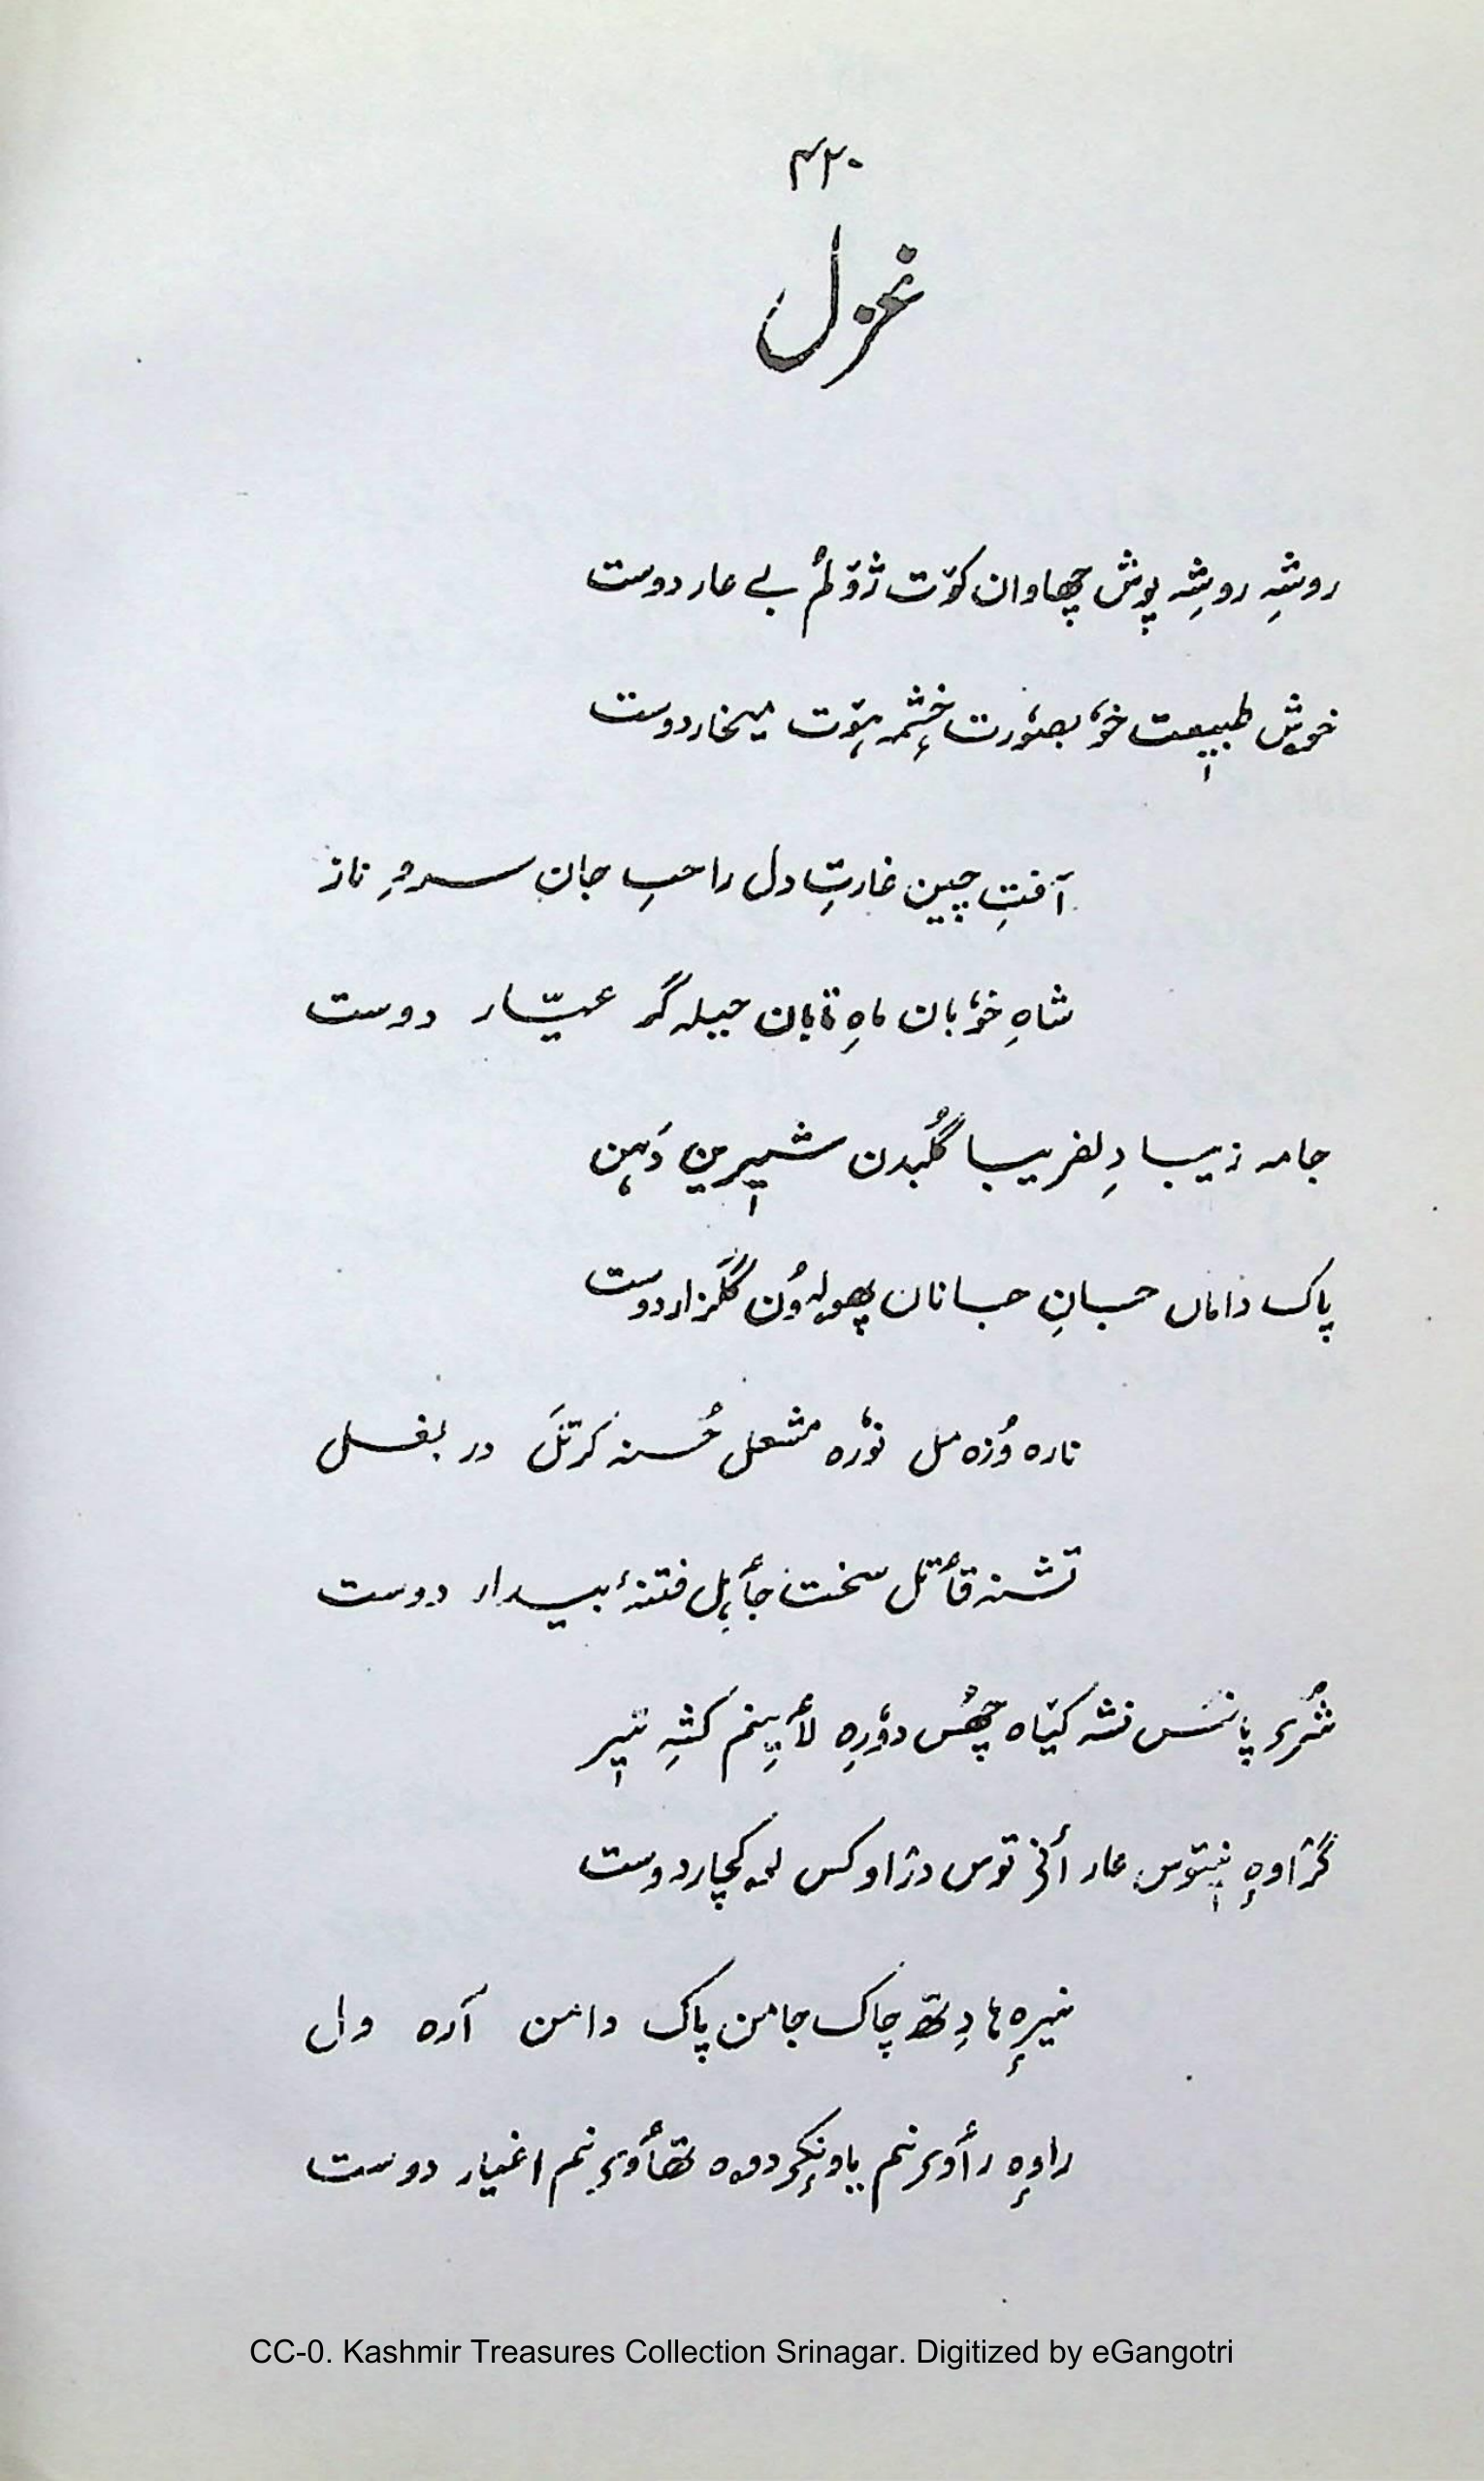 ۴۲۰
غزل
روشِہ روشِہ پوش چھاوان کوٚت ژوٚلُم بے عار دوست
خوش طبیٖعت خوٗبصوٗرت خٕشمہ ہوٚت میخار دوست
آفتِ چین غارتِ دل راحبِ جان سروِ ناز
شاہِ خوٗبان ماہِ تابان حیلہ گر عیّار دوست
جامہ زیبا دِلفریبا گُلبدن شیٖرین دَہن
پاک داماں جانِ جانان پھولہ وُن گُلزار دوست
نارہ وُزہ مل نوٗرہ مشعل حُسنہ کرتَل در بغل
تشنہ قٲتل سخت جٲہِل فتنۂ بیدار دوست
شُرۍ پانَس نشہ کیٛاہ چھُس دوٗرِہ لٲیِنم کشہِ تیٖر
گژاوہٕ نیٖتوس عار أنۍ توس دژاوکس لۄکچار دوست
نیرٕہ ہا دِتھ چاک جامن پاک دامن آرہ ول
راوٕہ رٲوۍ نم یاونٕکۍ دۄہ تھٲوۍ نم اغیار دوست
CC-0. Kashmir Treasures Collection Srinagar. Digitized by eGangotri